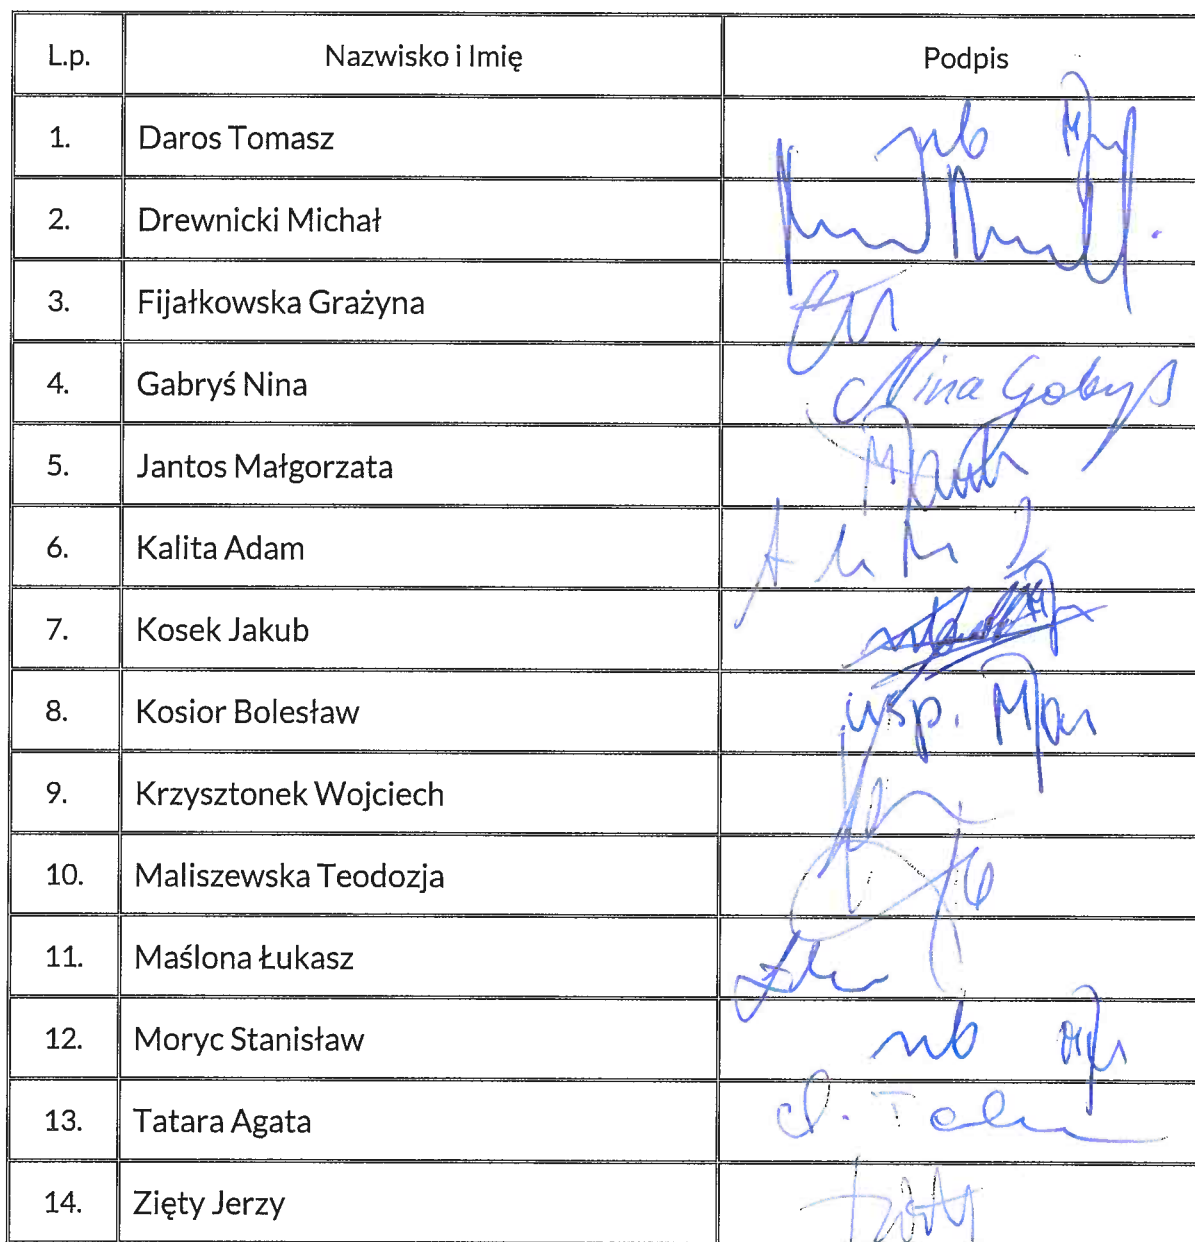 L.p. Nazwisko i Imię Podpis
1. Daros Tomasz nb
2. Drewnicki Michał
3. Fijałkowska Grażyna
4. Gabryś Nina Nina Gabryś
5. Jantos Małgorzata
6. Kalita Adam
7. Kosek Jakub
8. Kosior Bolesław usp.
9. Krzysztonek Wojciech
10. Maliszewska Teodozja
11. Maślona Łukasz
12. Moryc Stanisław nb
13. Tatara Agata
14. Zięty Jerzy